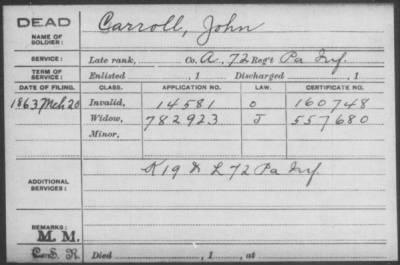 DEAD
NAME OF SOLDIER:
Carroll, John
SERVICE: Late rank, Co. A, 72 Reg't Pa Inf.
TERM OF SERVICE: Enlisted , 1 Discharged , 1
DATE OF FILING. CLASS. APPLICATION NO. LAW. CERTIFICATE NO.
1863 Mch 20 Invalid, 14581 0 160748
Widow, 782923 J 557680
Minor,
ADDITIONAL SERVICES: K 19 & L 72 Pa Inf.
REMARKS:
M. M.
C. S. R. Died , 1 , at